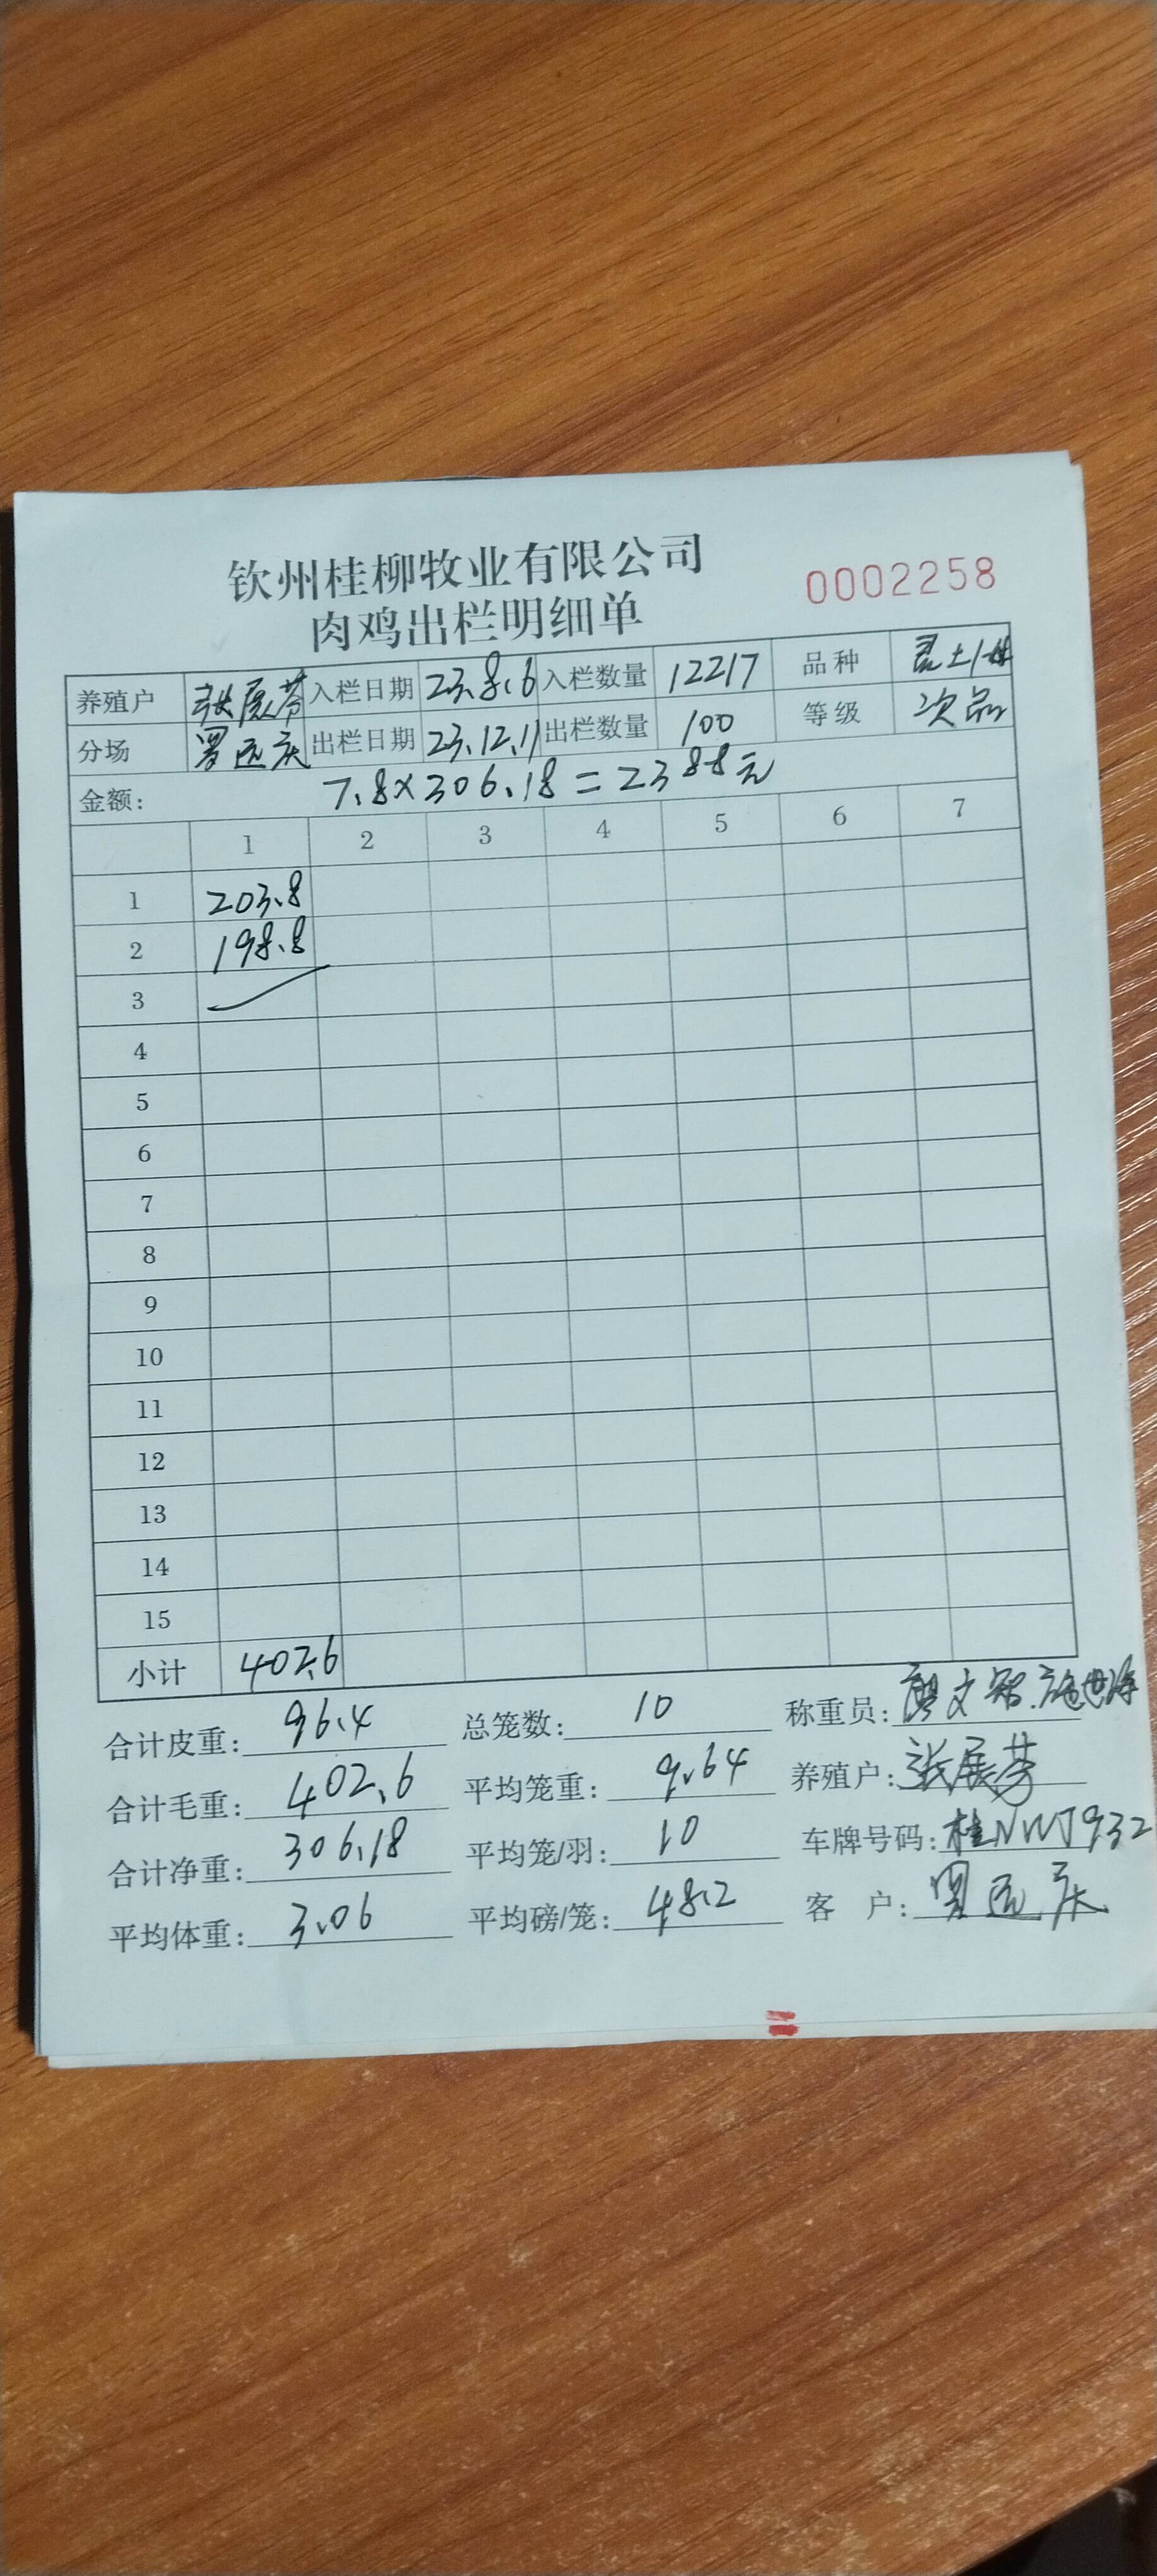 钦州桂柳牧业有限公司
肉鸡出栏明细单
0002258
养殖户 张展芳 入栏日期 23.8.6 入栏数量 12217 品种 土1母
分场 罗远庆 出栏日期 23.12.11 出栏数量 100 等级 次品
金额: 7.8×306.18=2388元
1 2 3 4 5 6 7
1 203.8
2 198.8
3
4
5
6
7
8
9
10
11
12
13
14
15
小计 402.6
合计皮重: 96.4 总笼数: 10 称重员: 廖文智
合计毛重: 402.6 平均笼重: 9.64 养殖户: 张展芳
合计净重: 306.18 平均笼/羽: 10 车牌号码: 桂NWJ932
平均体重: 3.06 平均磅/笼: 48.2 客 户: 罗远庆